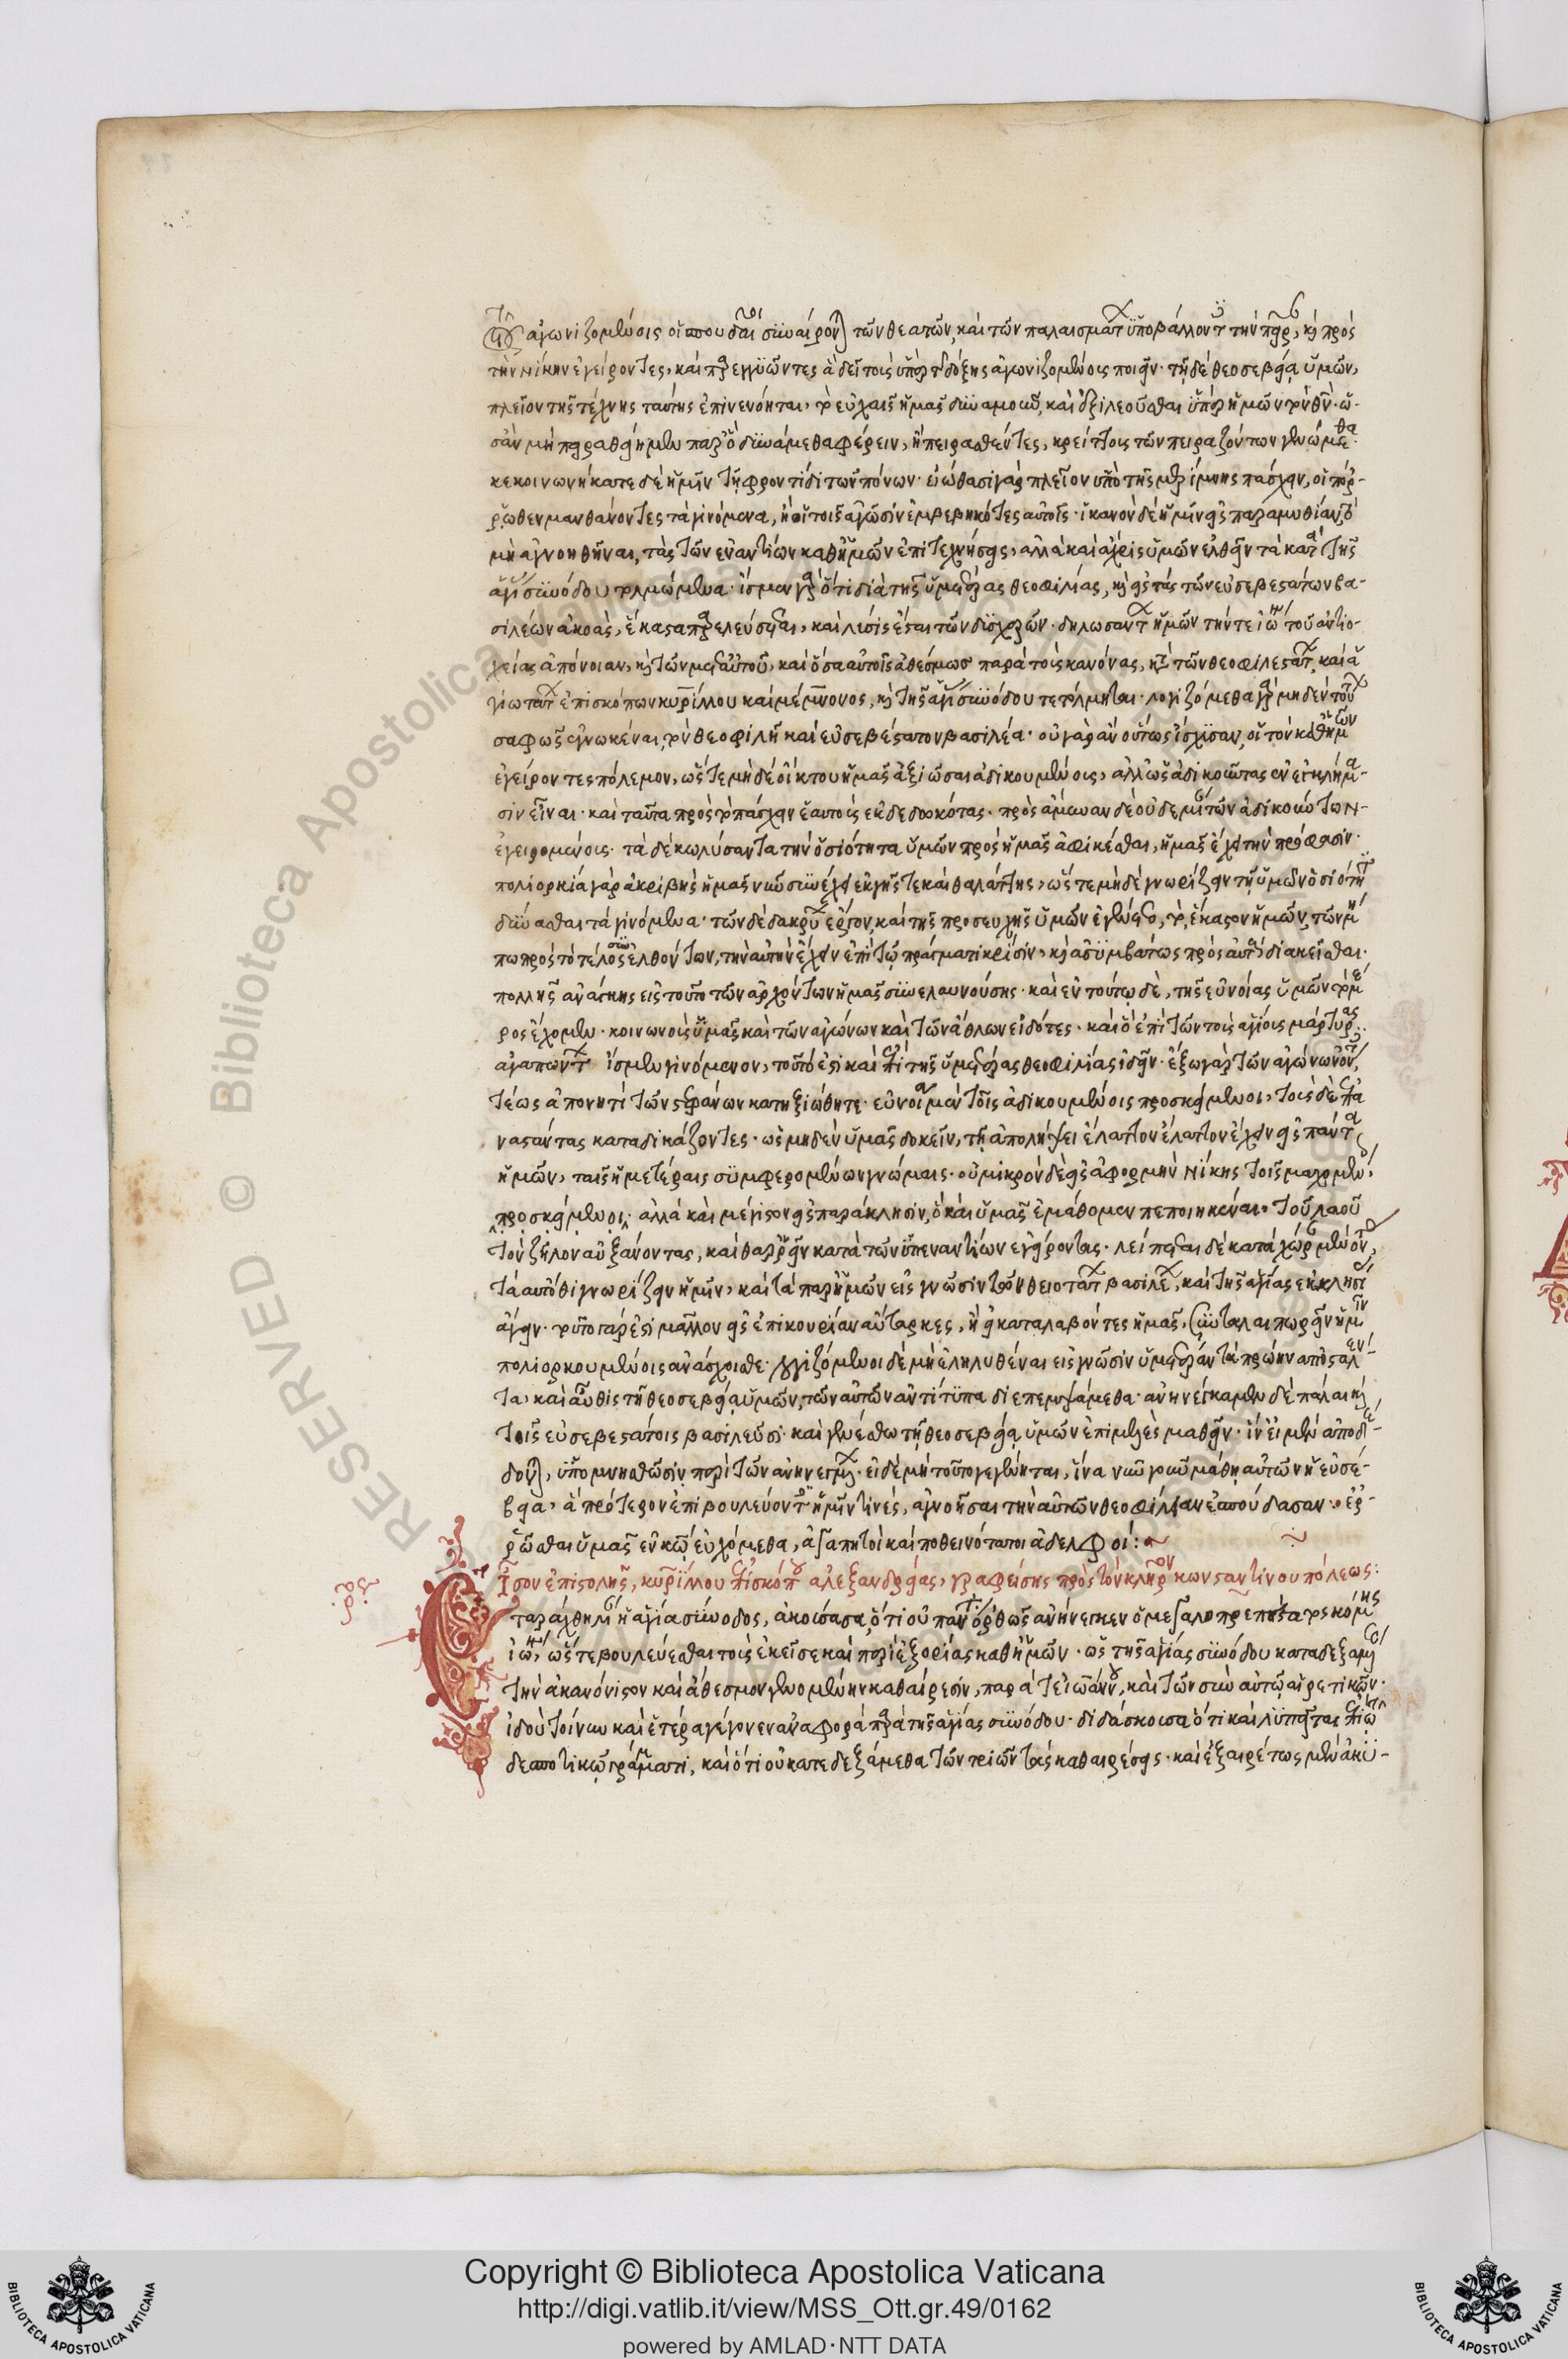 ἀγωνιζομένοις οἱ σπουδαῖοι συναίρονται τῶν θεατῶν, καὶ τῶν παλαισμάτων ὑποβάλλοντες τὴν πεῖραν, καὶ πρὸς
τὴν νίκην ἐγείροντες, καὶ παρεγγυῶντες ἃ δεῖ τοὺς ὑπὲρ δόξης ἀγωνιζομένους ποιεῖν· τῇ δὲ θεοσεβείᾳ ὑμῶν,
πλεῖον τῆς τέχνης ταύτης ἐπινενόηται, τὸ εὐχαῖς ἡμᾶς δυναμοῦν, καὶ ἐξιλεοῦσθαι ὑπὲρ ἡμῶν τὸν θεόν· ὡ-
σὰν μὴ πειρασθείημεν παρ' ὃ δυνάμεθα φέρειν, ἢ πειρασθέντες, κρείττους τῶν πειραζόντων γενώμεθα.
κεκοινωνήκατε δὲ ἡμῖν τῇ φροντίδι τῶν πόνων· εἰώθασι γὰρ πλεῖον ὑπὸ τῆς μερίμνης πάσχειν, οἱ πόρ-
ρωθεν μανθάνοντες τὰ γινόμενα, ἢ οἱ τοῖς ἀγῶσιν ἐμβεβηκότες αὐτοῖς· ἱκανὸν δὲ ἡμῖν εἰς παραμυθίαν, τὸ
μὴ ἀγνοηθῆναι, τὰς τῶν ἐναντίων καθ' ἡμῶν ἐπιτεχνήσεις, ἀλλὰ καὶ ἄχρις ὑμῶν ἐλθεῖν τὰ κατὰ τῆς
ἁγίας συνόδου τολμώμενα· ἴσμεν γὰρ ὅτι διὰ τῆς ὑμετέρας θεοφιλίας, καὶ εἰς τὰς τῶν εὐσεβεστάτων βα-
σιλέων ἀκοὰς, ἕκαστα παρελεύσεται, καὶ λύσις ἔσται τῶν δυσχερῶν· δηλωσάντων ἡμῶν τήν τε ἰωάννου τοῦ ἀντιο-
χείας ἀπόνοιαν, καὶ τῶν μετ' αὐτοῦ, καὶ ὅσα αὐτοῖς ἀθέσμως παρὰ τοὺς κανόνας, κατὰ τῶν θεοφιλεστάτων, καὶ ἁ
γιωτάτων ἐπισκόπων κυρίλλου καὶ μέμνονος, καὶ τῆς ἁγίας συνόδου τετόλμηται· λογιζόμεθα γὰρ μηδὲν τούτων
σαφῶς ἐγνωκέναι, τὸν θεοφιλῆ καὶ εὐσεβέστατον βασιλέα· οὐ γὰρ ἂν οὕτως ἴσχυσαν, οἱ τὸν καθ' ἡμῶν
ἐγείροντες πόλεμον, ὥς τε μηδὲ οἴκτου ἡμᾶς ἀξιῶσαι ἀδικουμένους, ἀλλ' ὡς ἀδικοῦντας ἐν ἐγκλήμα-
σιν εἶναι· καὶ ταῦτα πρὸς τὸ πάσχειν ἑαυτοὺς ἐκδεδωκότας· πρὸς ἄμυναν δὲ οὐδεμίαν τῶν ἀδικούντων
ἐγειρομένους· τὰ δὲ κωλύσαντα τὴν ὁσιότητα ὑμῶν πρὸς ἡμᾶς ἀφικέσθαι, ἡμᾶς ἔχει τὴν πρόφασιν·
πολιορκία γὰρ ἀκριβὴς ἡμᾶς νῦν συνέχει ἐκ γῆς τε καὶ θαλάττης, ὥς τε μηδὲ γνωρίζειν τῇ ὑμῶν ὁσιότητι
δύνασθαι τὰ γινόμενα· τῶν δὲ δακρύων ἔργον, καὶ τῆς προσευχῆς ὑμῶν ἐγένετο, τὸ, ἕκαστον ἡμῶν, τῶν μή
πω πρὸς τὸ τέλος συνελθόντων, τὴν αὐτὴν ἔχειν ἐπὶ τῷ πράγματι κρίσιν, καὶ ἀσυμβάτως πρὸς αὐτὸ διακεῖσθαι·
πολλῆς ἀνάγκης εἰς τοῦτο τῶν ἀρχόντων ἡμᾶς συνελαυνούσης· καὶ ἐν τούτῳ δὲ, τῆς εὐνοίας ὑμῶν τὸ μέ
ρος ἔχομεν· κοινωνοὺς ὑμᾶς καὶ τῶν ἀγώνων καὶ τῶν ἄθλων εἰδότες· καὶ ὃ ἐπὶ τῶν τοὺς ἁγίους μάρτυρας
ἀγαπώντων ἴσμεν γινόμενον, τοῦτό ἐστι καὶ ἐπὶ τῆς ὑμετέρας θεοφιλίας ἰδεῖν· ἔξω γὰρ τῶν ἀγώνων ὄντες,
τέως ἀπονητὶ τῶν στεφάνων κατηξιώθητε· εὖνοι μὲν τοῖς ἀδικουμένοις προσκείμενοι, τοὺς δὲ ἐπα
ναστάντας καταδικάζοντες· ὡς μηδὲν ὑμᾶς δοκεῖν, τῇ ἀπολήψει ἔλαττον ἔλαττον ἔχειν εἰς πάντα
ἡμῶν, ταῖς ἡμετέραις συμφερομένων γνώμαις· οὐ μικρὸν δὲ εἰς ἀφορμὴν νίκης τοῖς μαχομένοις
προσκείμενοι· ἀλλὰ καὶ μέγιστον εἰς παράκλησιν, ὃ καὶ ὑμᾶς ἐμάθομεν πεποιηκέναι· τοῦ λαοῦ
τὸν ζῆλον αὐξάνοντας, καὶ θαρρεῖν κατὰ τῶν ὑπεναντίων ἐγείροντας· λείπεται δὲ κατὰ χώραν μένοντας,
τὰ αὐτόθι γνωρίζειν ἡμῖν, καὶ τὰ παρ' ἡμῶν εἰς γνῶσιν τῶν θειοτάτων βασιλέων, καὶ τῆς ἁγίας ἐκκλησίας
ἄγειν· τοῦτο γάρ ἐστι μᾶλλον εἰς ἐπικουρίαν αὔταρκες, ἢ εἰ καταλαβόντες ἡμᾶς, συνταλαιπωρεῖν ἡμῖν
πολιορκουμένοις ἀνάσχοισθε· λογιζόμενοι δὲ μὴ ἐληλυθέναι εἰς γνῶσιν ὑμετέραν τὰ πρώην ἀποσταλέν-
τα, καὶ αὖθις τῇ θεοσεβείᾳ ὑμῶν, τῶν αὐτῶν ἀντίτυπα διεπεμψάμεθα· ἀνηνέγκαμεν δὲ πάλαι καὶ
τοῖς εὐσεβεστάτοις βασιλεῦσι· καὶ γενέσθω τῇ θεοσεβείᾳ ὑμῶν ἐπιμελὲς μαθεῖν· ἵν' εἰ μὲν ἀποδέ-
δοται, ὑπομνησθῶσιν περὶ τῶν ἀνηνεγμένων· εἰ δὲ μὴ τοῦτο γεγένηται, ἵνα νῦν γοῦν μάθῃ αὐτῶν ἡ εὐσέ-
βεια, ἃ πρότερον ἐπιβουλεύοντες ἡμῖν τινὲς, ἀγνοῆσαι τὴν αὐτῶν θεοφίλειαν ἐσπούδασαν· ἐρ-
ρῶσθαι ὑμᾶς ἐν κυρίῳ εὐχόμεθα, ἀγαπητοὶ καὶ ποθεινότατοι ἀδελφοί:
Ἴσον ἐπιστολῆς, κυρίλλου ἐπισκόπου ἀλεξανδρείας, γραφείσης πρὸς τὸν κλῆρον κωνσταντινουπόλεως:
Ἐταράχθη λίαν ἡ ἁγία σύνοδος, ἀκούσασα, ὅτι οὐ πάντα ὀρθῶς ἀνήνεγκεν ὁ μεγαλοπρεπέστατος κόμης
ἰωάννης, ὥς τε βουλεύεσθαι τοὺς ἐκεῖσε καὶ περὶ ἐξορίας καθ' ἡμῶν· ὡς τῆς ἁγίας συνόδου καταδεξαμένης
τὴν ἀκανόνιστον καὶ ἄθεσμον γενομένην καθαίρεσιν, παρά τε ἰωάννου, καὶ τῶν σὺν αὐτῷ αἱρετικῶν·
ἰδοὺ τοίνυν καὶ ἑτέρα γέγονεν ἀναφορὰ παρὰ τῆς ἁγίας συνόδου· διδάσκουσα ὅτι καὶ λυπεῖται ἐπὶ τῷ
δεσποτικῷ γράμματι, καὶ ὅτι οὐ κατεδεξάμεθα τῶν τριῶν τὰς καθαιρέσεις· καὶ ἐξαιρέτως μὲν ἀκυ-
RESERVED © Biblioteca Apostolica Vaticana
Copyright © Biblioteca Apostolica Vaticana
http://digi.vatlib.it/view/MSS_Ott.gr.49/0162
powered by AMLAD·NTT DATA
BIBLIOTECA APOSTOLICA VATICANA
BIBLIOTECA APOSTOLICA VATICANA